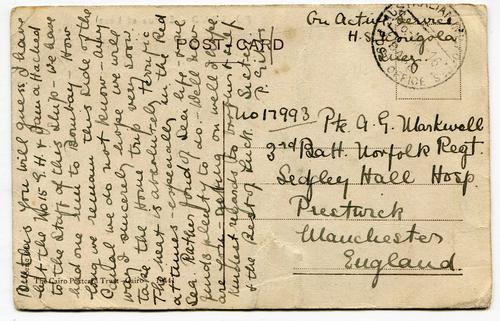 POST CARD
On Active Service
H.S. Wongola
Suez.
No 17993
Pte A. G. Maskwell
3rd Batt. Norfolk Regt.
Sedgley Hall Hosp.
Prestwick
Manchester
England.
Dear Chris You will guess I have
left the No 15 G.H. & I am attached
to the Staff of this ship - we have
had one run to Bombay - How
long we remain this side of the
Canal we do not know - any
way I sincerely hope we will
take the Home trip very soon.
The heat is absolutely terrific
at times - especially in the Red
Sea. Rather fond of Sea life - one
finds plenty to do - Well how
are you - getting on well I hope.
Kindest regards to
& the Best of Luck
The Cairo Postcard Trust - Cairo